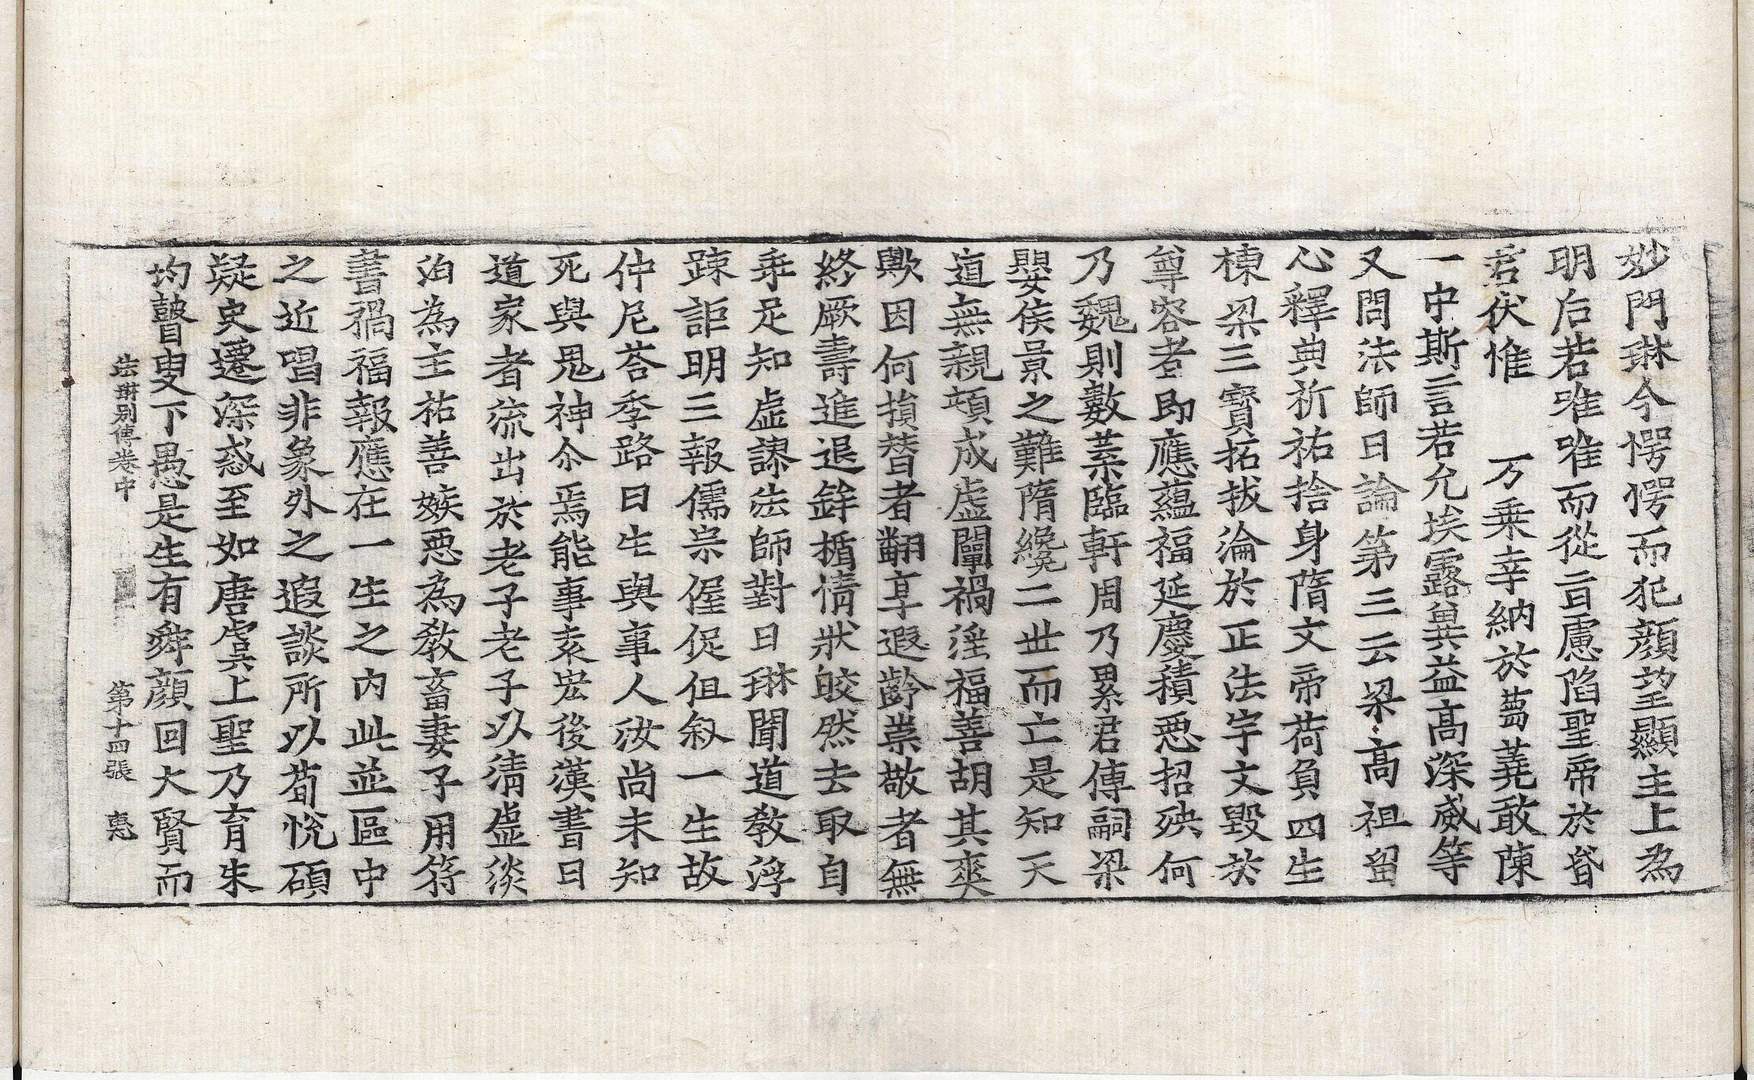 妙門琳今愕愕而犯顔望顯主上為
明后若唯唯而從旨慮陷聖帝於昏
君伏惟　万乗幸納於蒭蕘敢陳
一中斯言若允埃露巽益高深威等
又問法師曰論第三云梁高祖留
心釋典祈祐捨身隋文帝荷負四生
棟梁三寶拓拔淪於正法宇文毀於
尊容者即應蘊福延慶積惡招殃何
乃魏則數葉臨軒周乃累君傳嗣梁
嬰侯景之難隋纔二世而亡是知天
道無親頓成虛闡禍淫福善胡其爽
歟因何損替者翻享遐齡崇敬者無
終厥壽進退鉾楯情狀皎然去取自
乖足知虛謬法師對曰琳聞道敎浮
踈詎明三報儒宗偓促但叙一生故
仲尼荅季路曰生與事人汝尚未知
死與鬼神尒焉能事袁宏後漢書曰
道家者流出於老子老子以清虛淡
泊為主祐善嫉惡為敎畜妻子用符
書禍福報應在一生之内此並區中
之近唱非象外之遐談所以荀悅碩
疑史遷深惑至如唐虞上聖乃育朱
均瞽叟下愚是生有舜顔回大賢而
法琳別傳卷中　第十四張　恵